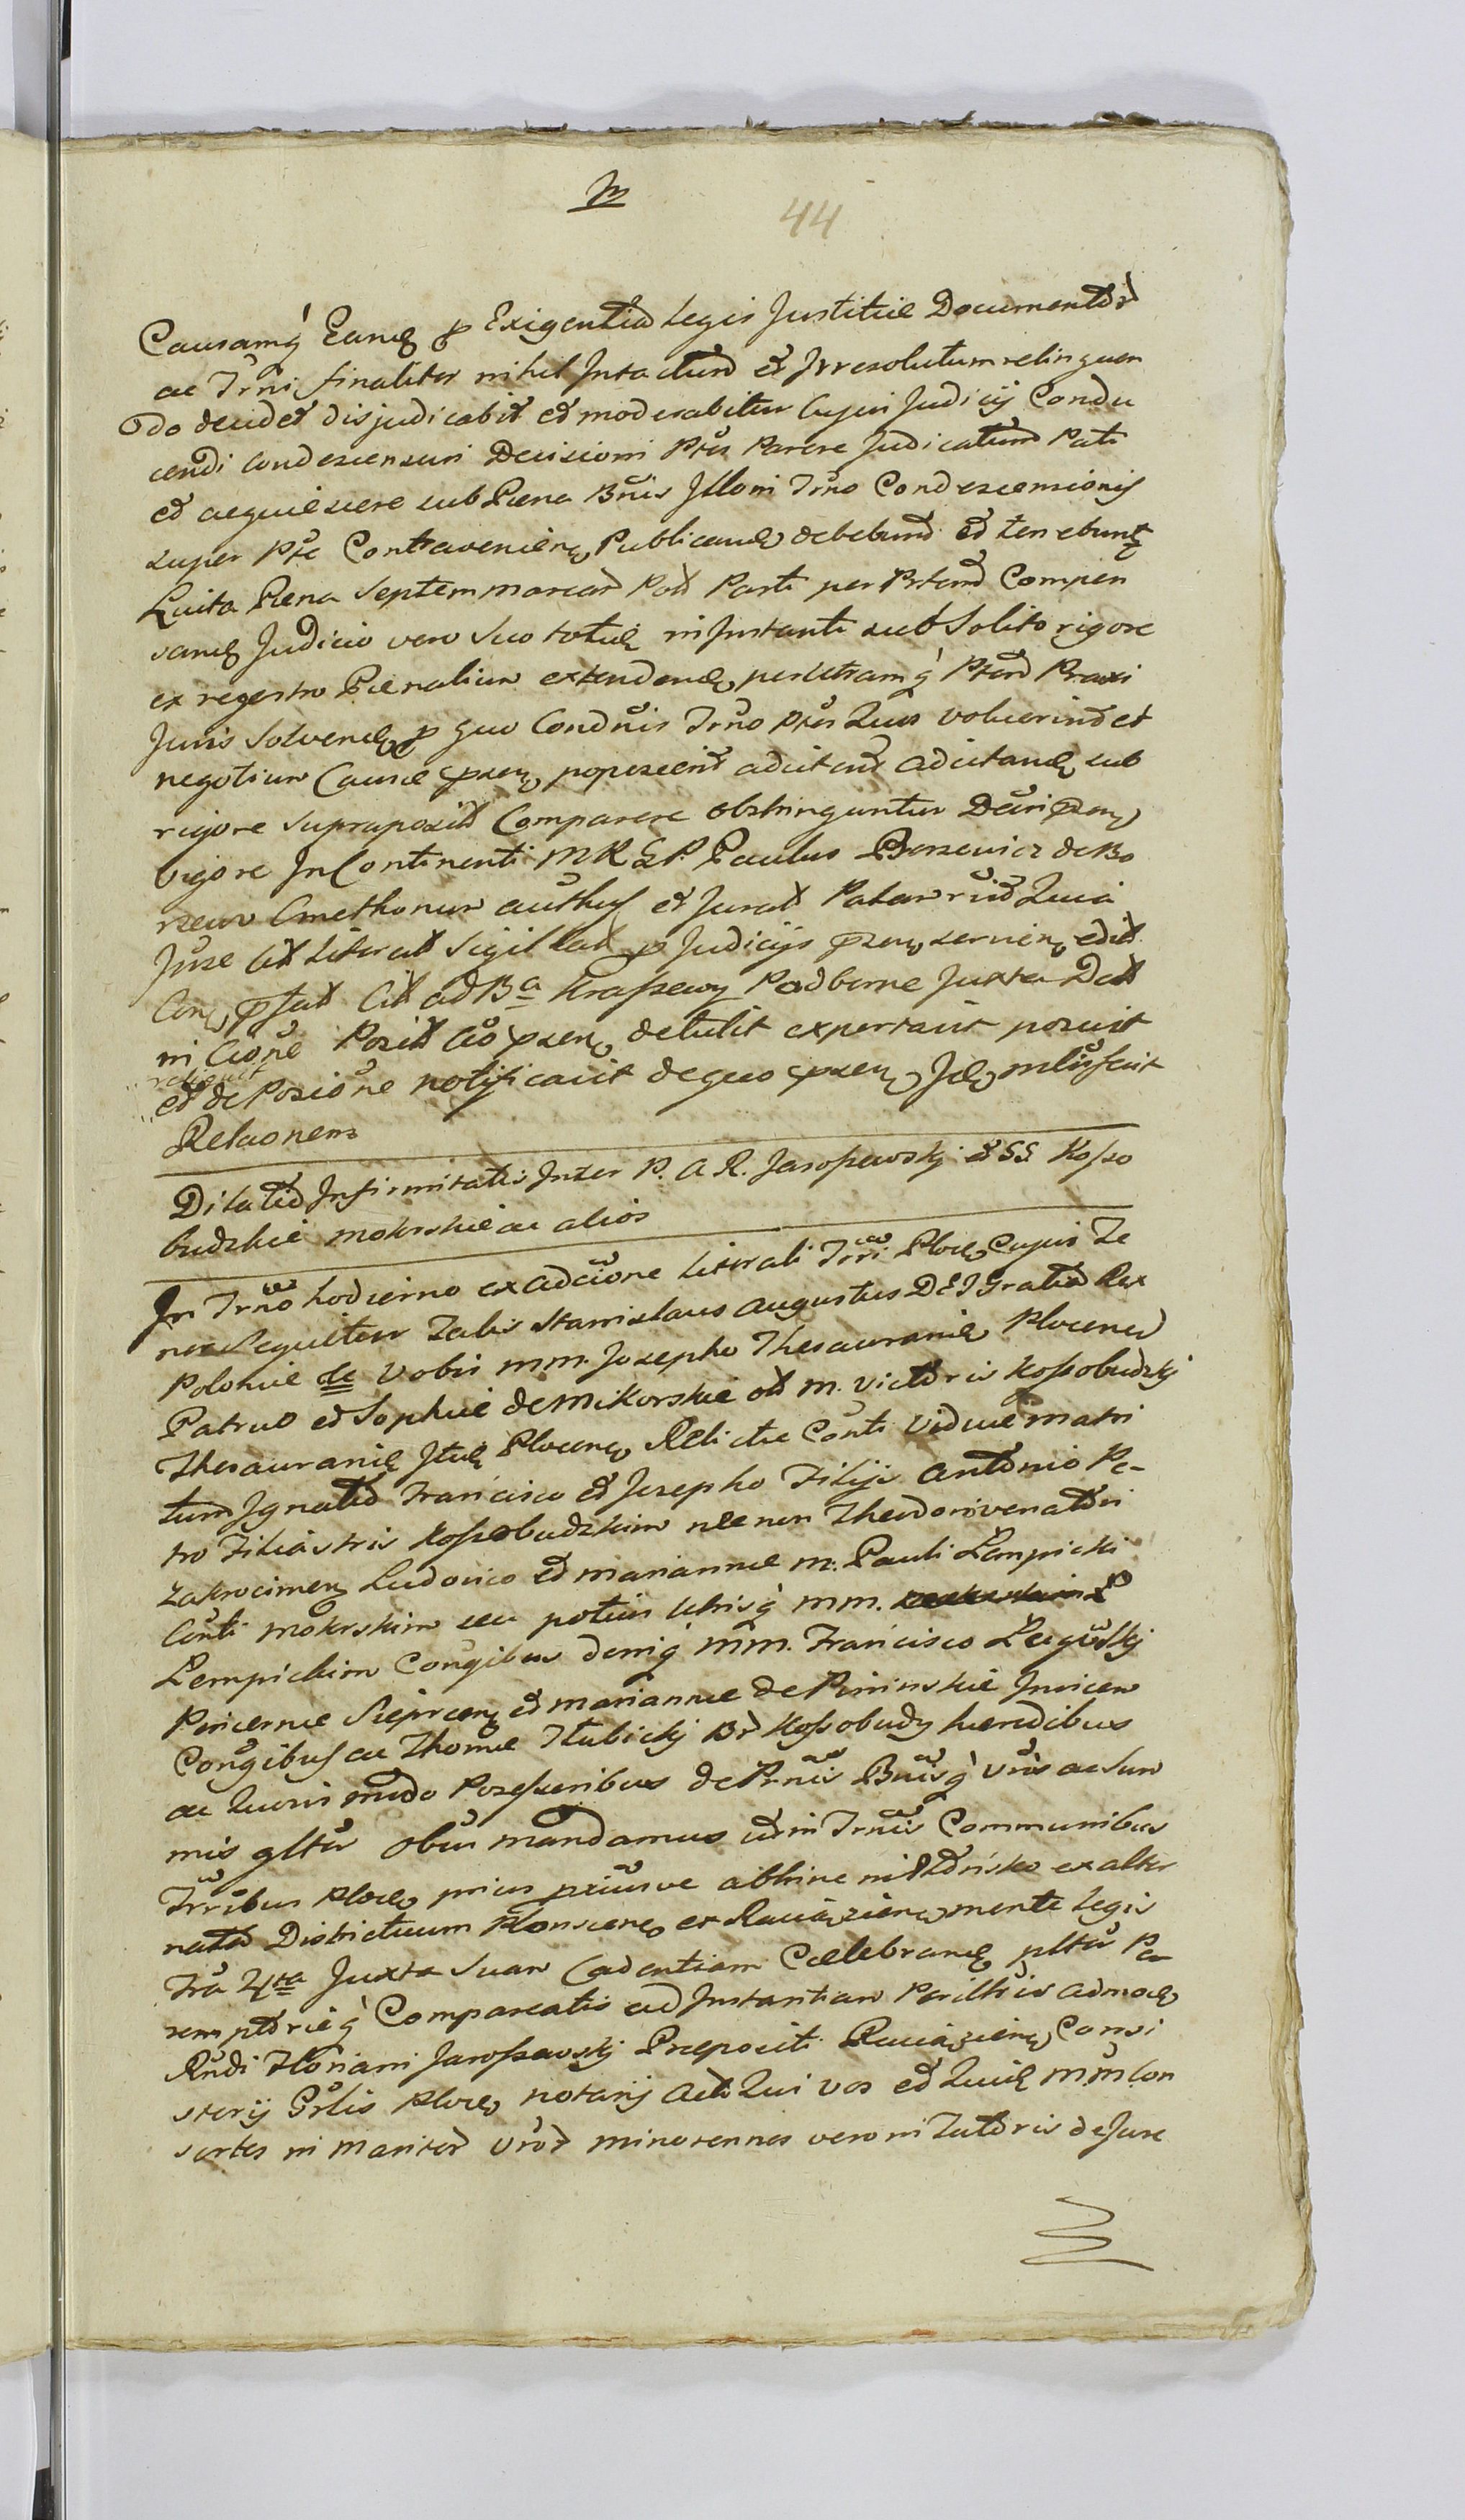 44
Causamq́ Eand p Exigentia Legis Justitiæ Documentor
ac Trni finaliter nihil Intactum et Irresolutum relinquen
do decidet disjudicabit et moderabitur Cujus Judicij Condu
cendi Condescensuri Decisioni Ptes Parere Judicatum Pati
et acquiescere sub Pæna Bnis Illoni Trno Condescensionis
super Pte Contravenien Publicand debebund et tenebunt
Luita Pæna Septem marcar Pod Parti per Ptem Compen
sand Judicio vero Suo totid in Instanti sub Solito rigore
ex regestro Pænalium extendend per Utramq́ Ptem Praxi
Juris Solvend p quo Condnis Trno Ptes Quos voluerind et
negotium Causæ psen poposcerit adcitent adcitand sub
rigore Supraposit Comparere obstringuntur Decri psen
vigore In Continenti MRSP. Paulus Borzewicz de Bo
rzewo Cmethonum authus et Jurat Palam rnd Quia
Juxe Cit Literat Sigillat p Judicijs psen servien edit
Con psat Cit ad Ba Kraszewy Podborne Juxta Dat
in Cione Posit Cio psen detulit exportavit posuit
reliquit
et de Posicione notificavit de quo psen Jd mlis fecit
Relaonem
Dilatio Infirmitatis Inter P. A R. Jaroszewskj et GG Koszo
budzkie mokrskie ac alios
In Trno hodierno ex adcione Literali Trri Ploc Cujus Te
nor Sequitur Talis Stanislaus Augustus DEI Gratia Rex
Poloniæ &c Vobis mm. Josepho Thesaurarid Plocend
Patruo et Sophiæ de Mikorskie olt m. Victoris Kossobudzkj
Thesaurarid Itid Plocen Relictæ Conti Viduæ matri
tum Ignatio Francisco et Josepho Filijs Antonio Pe-
tro Filiastris Kossobudzkim necnon Theodori venatori
Zakrocimen Ludovico et mariannæ m: Pauli Lempicki
Conti mokrskim seu potius Utrisq́ mm.
Lempickim Conjgibus deniq́ mm. Francisco Legowskj
Pincernæ Sieprcen et mariannæ de Pininskie Invicem
Congibus ac Thomæ Tlubickj Br Kossobudy hæredibus
ac Quovis modo Possessoribus de Prnis Bnisq́ Vris ac Sum
mis gltr obus mandamus ut in Trnis Communibus
Trribus Ploc prius pxiusve abhinc in Ptorisko ex alter
nata Districtuum Plonscen et Raciązien mente Legis
Fra 4ta Juxta Suam Cadentiam Cælebrand pltr Pe-
remptorieq́ Compareatis ad Instantiam Perillris admod
Rndi Floriani Jaroszewskj Præpositi Raciązien Consi
storij Grlis Ploc notarij Acti Qui Vos et Quid mm Con
sortes in maritor Vror minorennes vero in Tutoris de Jure